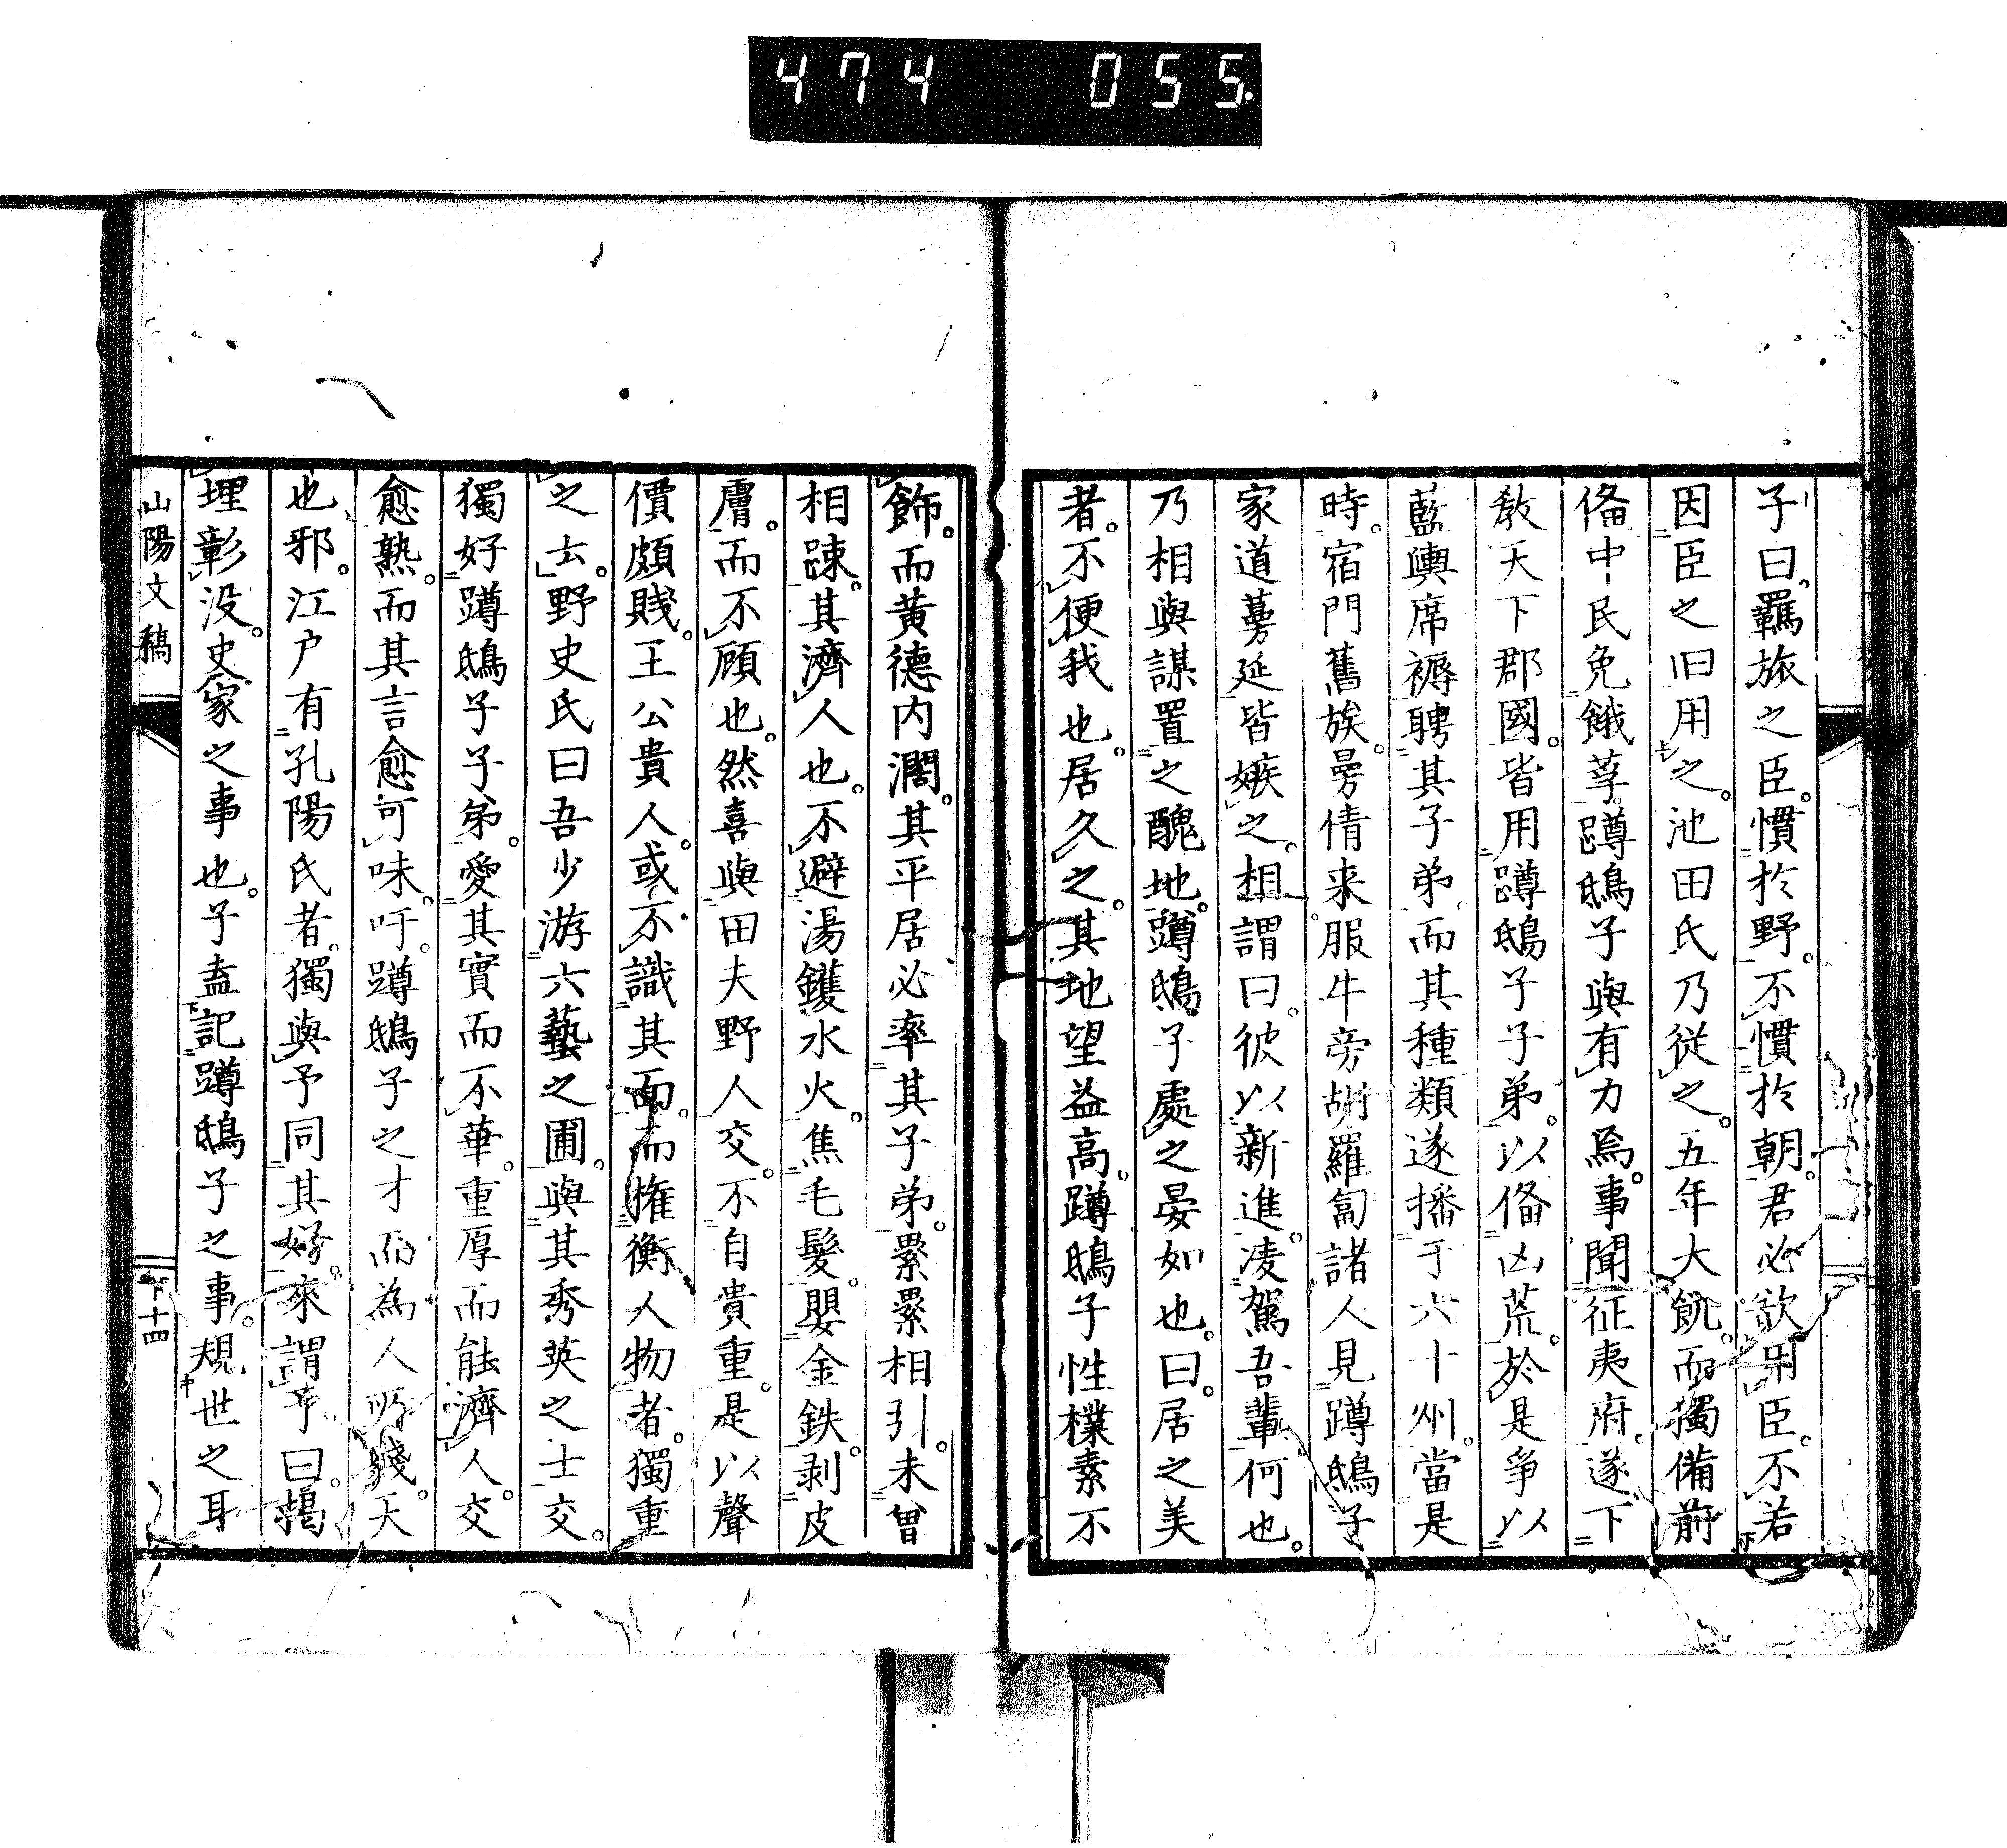 474 055
子曰。羈旅之臣。慣於野。不慣於朝。君必欲用臣。不若
因臣之旧用之。池田氏乃從之。五年大飢。而獨備前
俻中民免餓莩。蹲鴟子與有力焉。事聞征夷府。遂下
教天下郡國。皆用蹲鴟子子弟。以俻凶荒。於是爭以
藍輿席褥聘其子弟。而其種類遂播于六十州。當是
時。宿門舊族。曼倩来服牛旁胡羅匐諸人見蹲鴟子
家道蔓延皆嫉之。相謂曰。彼以新進。凌駕吾輩。何也。
乃相與謀置之醜地。蹲鴟子處之晏如也。曰。居之美
者。不便我也。居久之。其地望益高。蹲鴟子性樸素不
飾。而黄德内濶。其平居必率其子弟。累累相引。未曾
相踈。其濟人也。不避湯鑊水火。焦毛髮。嬰金鉄。剥皮
膚。而不顧也。然喜與田夫野人交。不自貴重。是以聲
價頗賤。王公貴人。或不識其面。而權衡人物者。獨重
之云。野史氏曰吾少游六藝之圃。與其秀英之士交。
獨好蹲鴟子子弟。愛其實而不華。重厚而能濟人。交
愈熟。而其言愈可味。吁。蹲鴟子之才而為人所賤。天
也邪。江户有孔陽氏者。獨與予同其好。來謂予曰。揭
埋彰没。史家之事也。子盍記蹲鴟子之事。規世之耳
山陽文稿
下十四